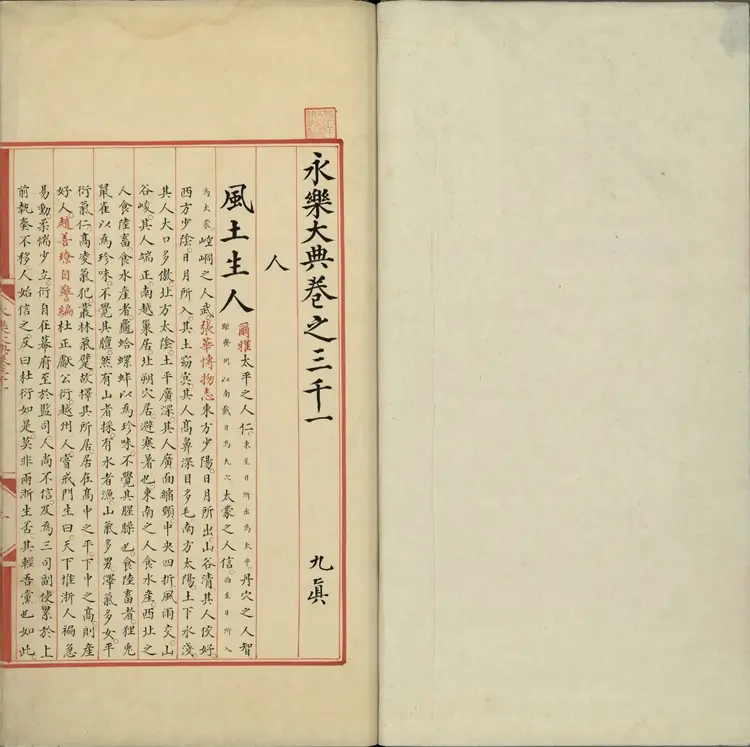 永樂大典卷之三千一 九真
人
風土生人
爾雅太平之人仁。東至日所出為太平。丹穴之人智
距齊州以南戴日為丹穴。太蒙之人信。西至日所入
為太蒙。崆峒之人武。張華博物志東方少陽。日月所出。山谷清。其人佼好。
西方少陰。日月所入。其土窈冥。其人高鼻深目多毛。南方太陽。土下水淺。
其人大口多傲。北方太陰。土平廣深。其人廣面縮頸。中央四折。風雨交。山
谷峻。其人端正。南越巢居。北朔穴居。避寒暑也。東南之人食水產。西北之
人食陸畜。食水產者。龜蛤螺蚌以為珍味。不覺其腥臊也。食陸畜者。狸兔
鼠雀以為珍味。不覺其膻。然有山者採。有水者漁。山氣多男。澤氣多女。平
衍氣仁。高凌氣犯。叢林氣躄。故擇其所居。居在高中之平。下中之高。則產
好人。趙善璙自警編杜正獻公衍。越州人。嘗戒門生曰。天下惟浙人褊急
易動。柔懦少立。衍自在幕府至於監司。人尚不信。及為三司副使。累於上
前執奏不移。人始信之。反曰。杜衍如是。莫非兩浙生否。其輕吾黨也如此。